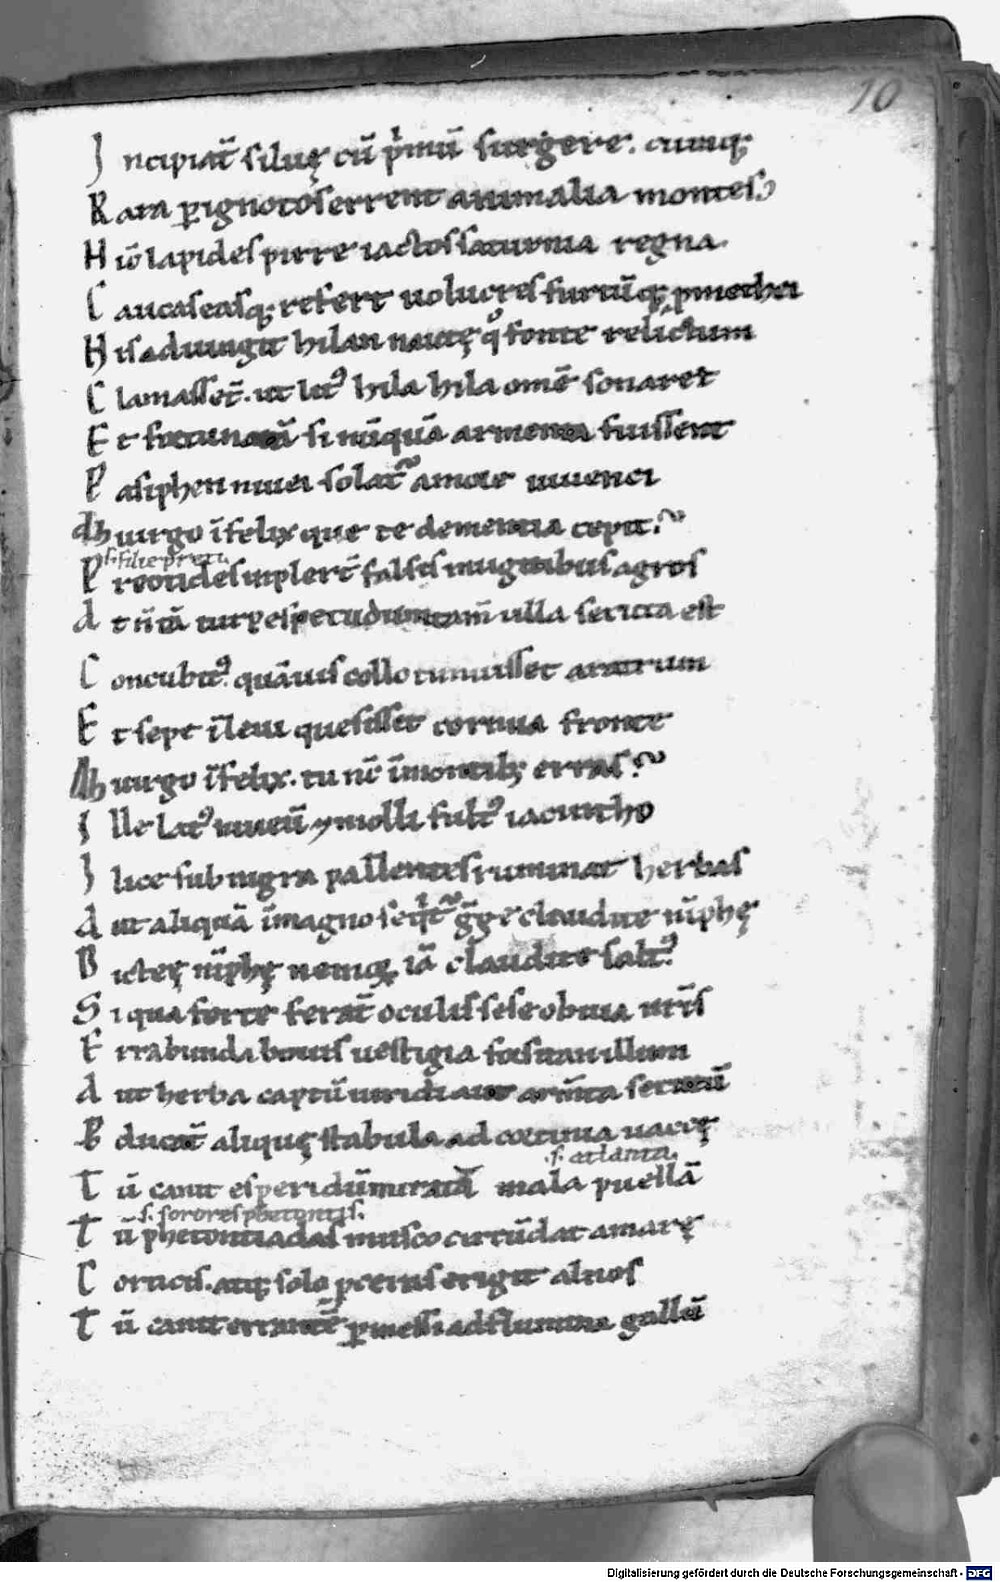 10
Incipiāt siluę cū p̄mū surgere. cumq;
Rara p̱ignotos errent animalia montes
Hiī lapides pirre iactos saturnia regna.
Caucaseasq; refert uolucres furtūq; pmethei
His adiungit hilan nautę q̊ fonte relictum
Clamassēt. ut lit᾽ hila hila omē sonaret
Et fortunatā si nūquā armenta fuissent
Pasiphen niuei solat᾽ amore iuuenci
Ah uirgo īfelix que te dementia cepit.
s. filie preti.
Pretides inplerēt falsis mugitibus agros
At n̄ tā turpes pecudum tam̄ ulla secuta est
Concubit᾽. quāuis collo timuisset aratrum
Et sepe īleui quesisset cornua fronte
Ah uirgo īfelix. tu nc̄ īmontib; erras.
Ille lat᾽ niueū molli fult᾽ iacintho
Ilice sub nigra pallentes ruminat herbas
Aut aliquā īmagno seqt̄ gge claudite nīphę
Dicteę nīphę nemoq; iā claudite salt᾽.
Si qua forte ferāt oculis sese obuia nr̄is
Errabunda bouis uestigia forsitan illum
Aut herba captū uiridi aut armta secutū
Pducāt alique stabula ad cortinia uaccę
.s. atlanta.
Tū canit esperidū miratā mala puellā
.s. sorores phetontis.
Tū phetontiadas musco circūdat amarę
Corticis. atq; solo pceras erigit alnos
Tū canit errantē p̱messi ad flumina gallū
Digitalisierung gefördert durch die Deutsche Forschungsgemeinschaft - DFG